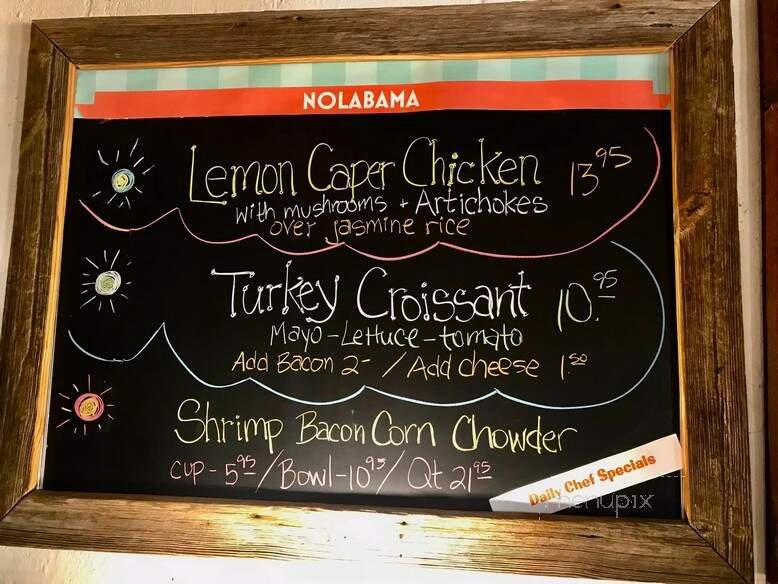 NOLABAMA
Lemon Caper Chicken 13 95
with mushrooms + Artichokes
over jasmine rice
Turkey Croissant 10. 95
Mayo-Lettuce-tomato
Add Bacon 2- / Add cheese 1. 50
Shrimp Bacon Corn Chowder
cup - 5 95 / Bowl - 10 95 / Qt 21 95
Daily Chef Specials
menupix